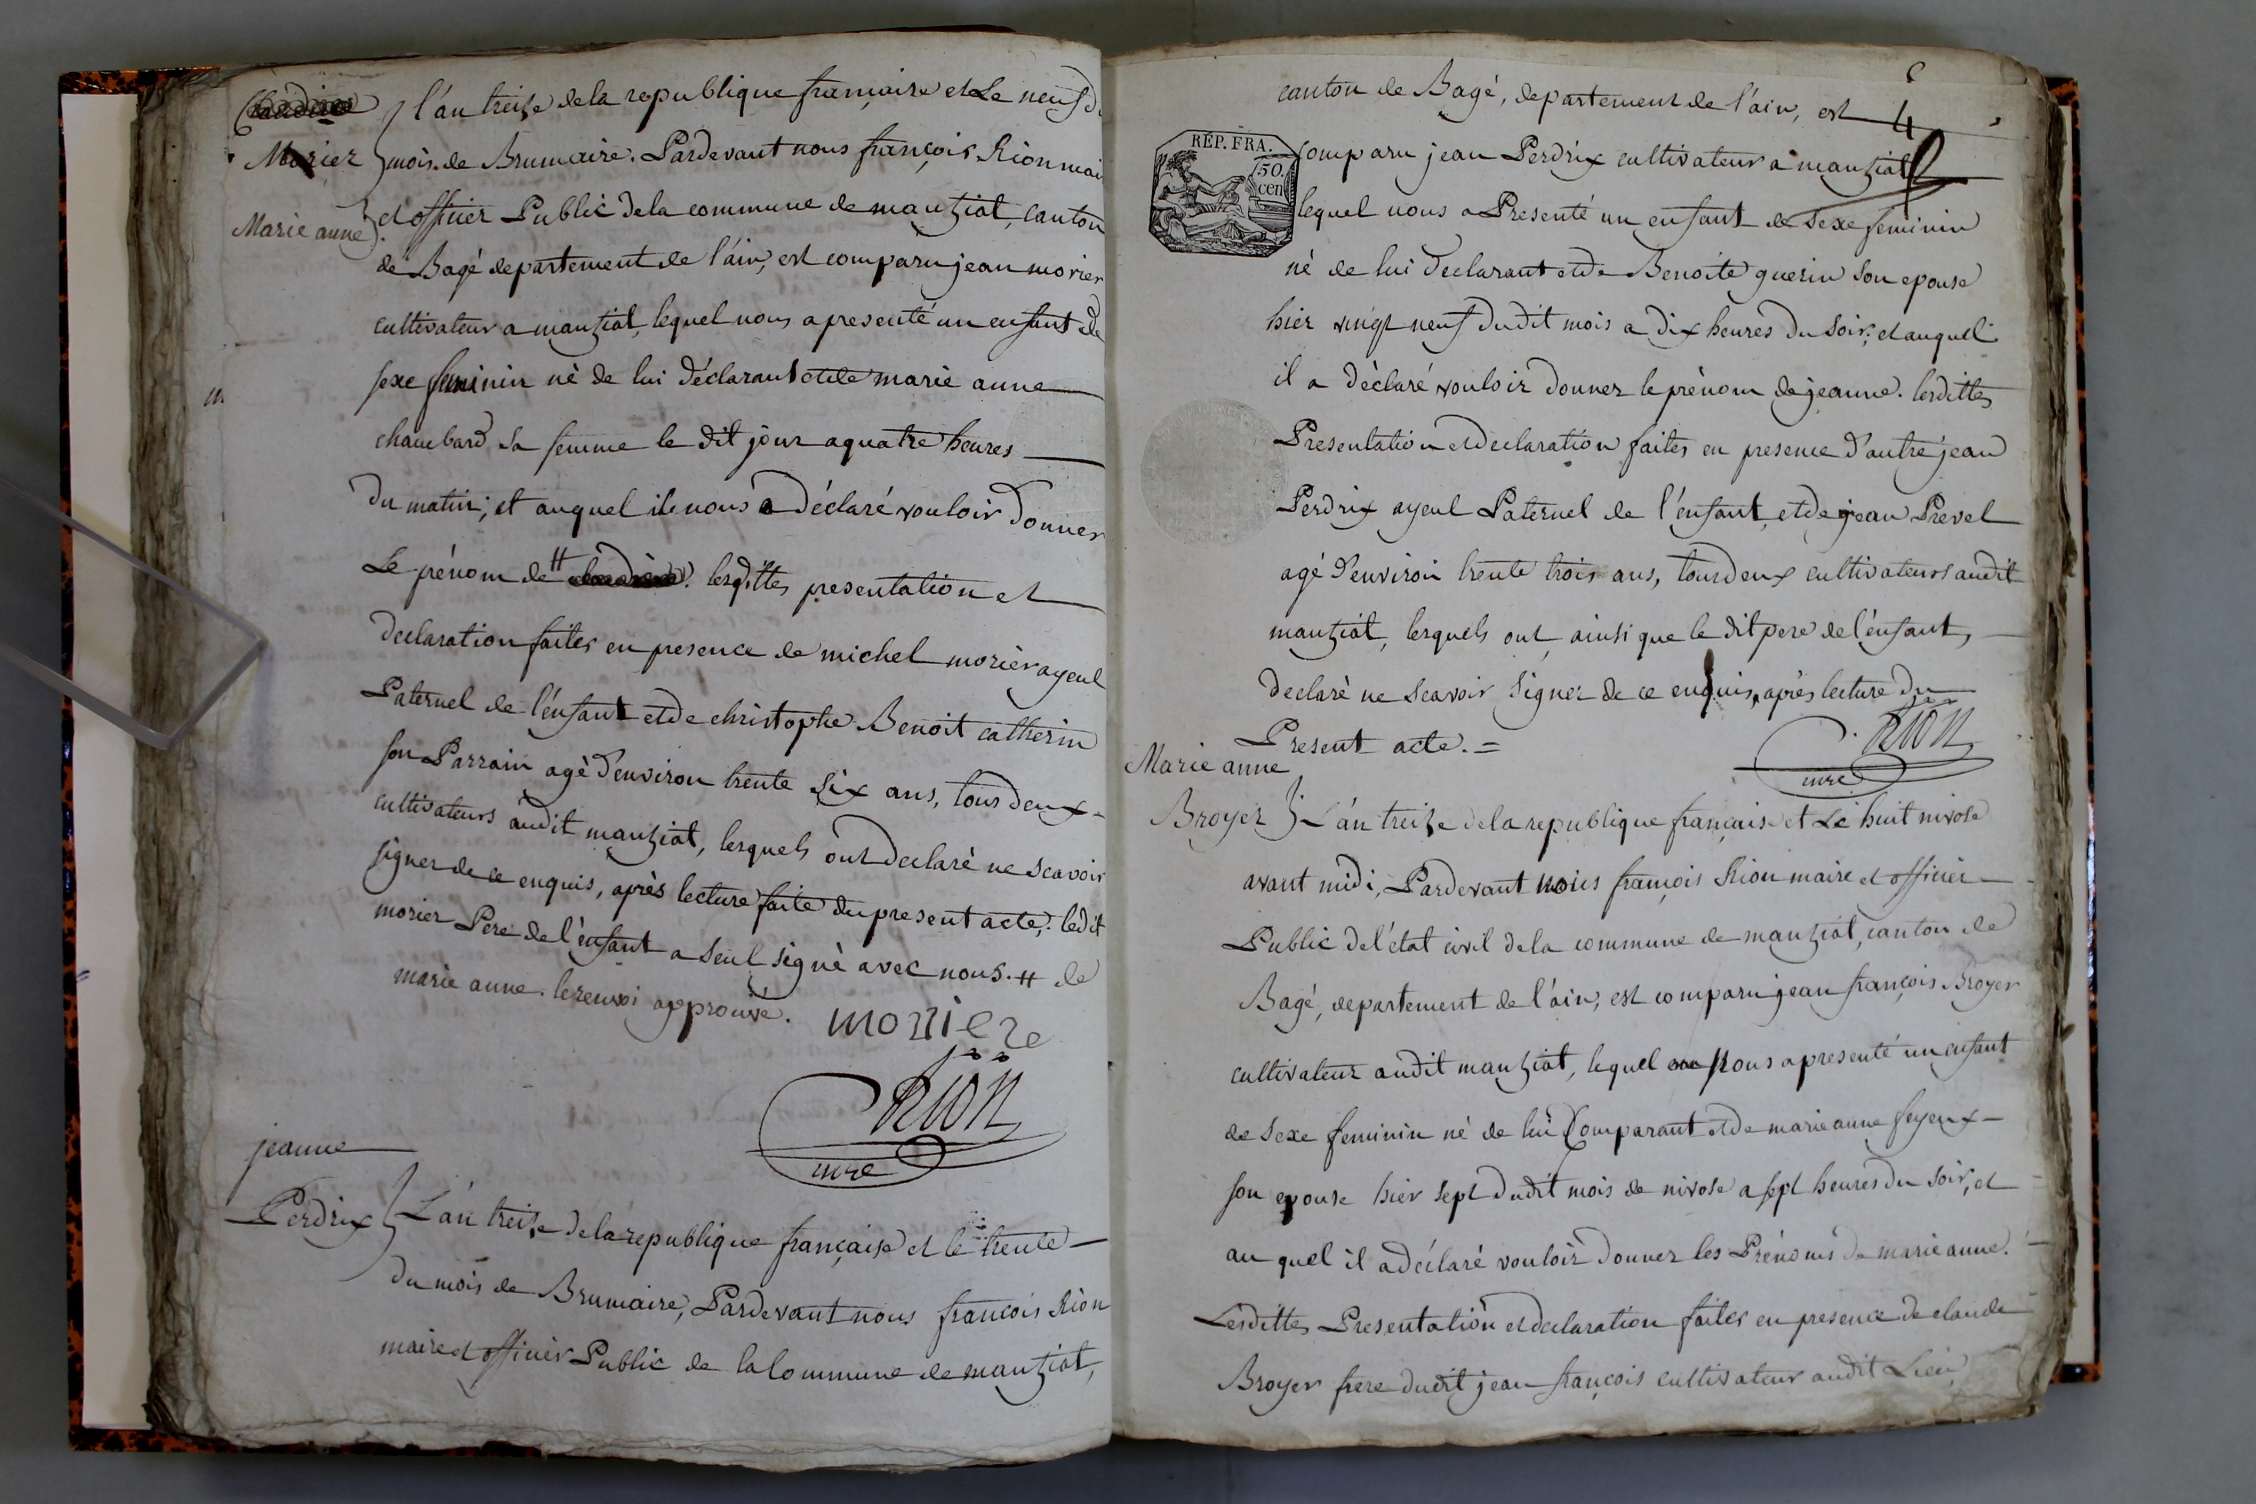 Morier
Marie anne
l'an treize de la republique française et Le neuf du
mois de Brumaire. Pardevant nous françois Rion mai
et officier Public de la commune de manziat, canton
de Bagé departement de l'ain, est comparu jean morier
cultivateur a manziat, lequel nous a presenté un enfant de
sexe feminin nè de lui déclarant et de marie anne
chambard sa femme le dit jour a quatre heures
du matin; et auquel il nous a déclaré vouloir donner
Le prénom de # lesdittes presentation et
declaration faites en presence de michel morièr ayeul
Paternel de l'enfant et de christophe Benoit catherin
son Parrain agè d'environ trente six ans, tous deux
cultivateurs audit manziat, lesquels ont declarè ne scavoir
signer de ce enquis, après lecture faite du present acte. ledit
morier Pere de l'enfant a seul signè avec nous. # de
marie anne. le renvoi approuvé.
morriere
Rion
mre
jeanne
Perdrix
L'an treize de la republique française et le trente
du mois de Brumaire, Pardevant nous francois Rion
maire et officier Public de la Commune de manziat,
4
canton de Bagé, departement de l'ain, est
RÉP. FRA.
50.
cen
comparu jean Perdrix cultivateur a manziat
lequel nous a Presenté un enfant de sexe feminin
nè de lui declarant et de Benoite guerin son epouse
hier vingt neuf dudit mois a dix heures du soir, et auquel
il a dèclaré vouloir donner le prènom de jeanne. lesdittes
Presentation et declaration faites en presence d'autre jean
Perdrix ayeul Paternel de l'enfant, et de jean Prevel
agé d'environ trente trois ans, tous deux cultivateurs audit
manziat, lesquels ont, ainsi que le dit pere de l'enfant,
declarè ne scavoir signer de ce enquis, après lecture du
Present acte. =
Rion
mre
Marie anne
Broyer
L'an treize de la republique française et Le huit nivose
avant midi, Pardevant nous françois Rion maire et officier
Public de l'état civil de la commune de manziat, canton de
Bagé, departement de l'ain, est comparu jean françois Broyer
cultivateur audit manziat, lequel nous a presenté un enfant
de sexe feminin né de lui Comparant et de marie anne feyeux
son epouse hier sept dudit mois de nivose a sept heures du soir, et
au quel il a déclaré vouloir donner les Prénoms de marie anne.
Lesdittes Presentation et declaration faites en presence de claude
Broyer frere dudit jean françois cultivateur audit Lieu,